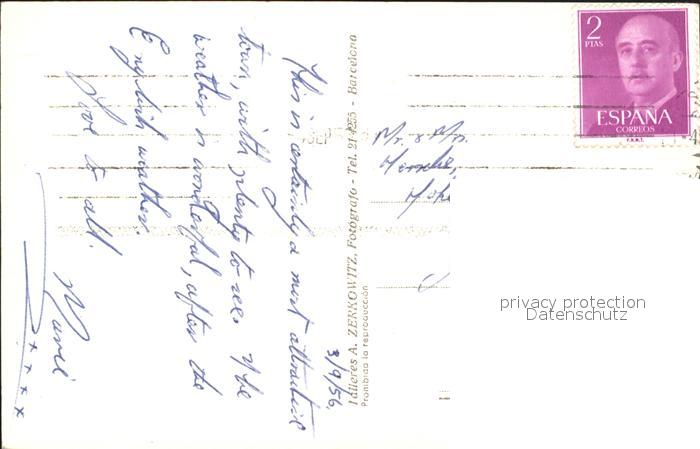 3/9/56.
This is certainly a most attractive
town, with plenty to see. The
weather is wonderful, after the
English weather.
Love to all.
x x x x
Mr. & Mrs.
Talleres A. ZERKOWITZ, Fotógrafo - Tel. 214255 - Barcelona
Prohibida la reproducción
2
PTAS
ESPAÑA
CORREOS
F.N.M.T.
SEP
privacy protection
Datenschutz